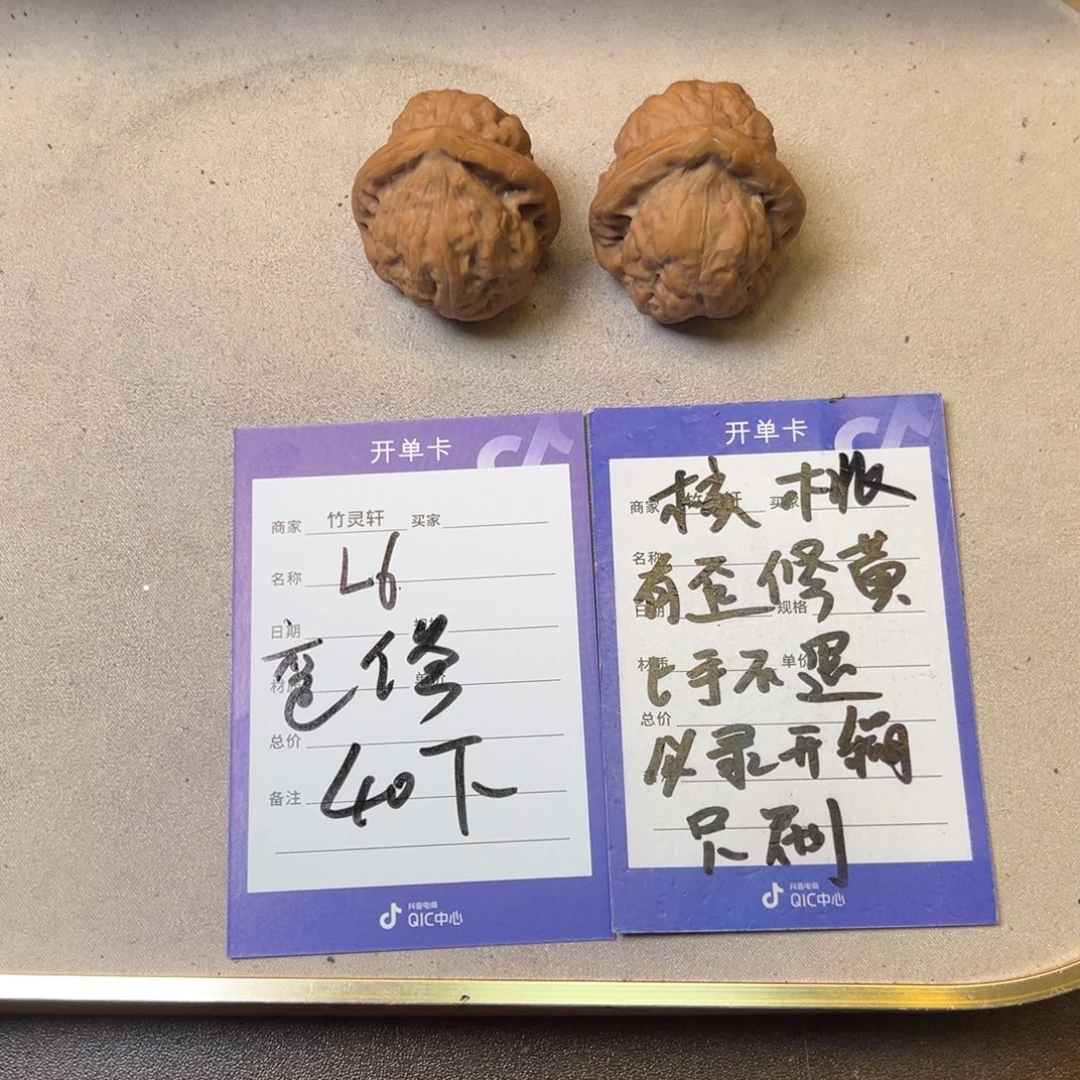 开单卡
商家 竹灵轩 买家
名称
L6
日期
总价
40下
备注
抖音电商
QIC中心
开单卡
商家 竹灵轩 买家
核桃
名称
有歪修黄
日期 规格
材质 单价
上手不退
总价
以录开捅
只刷
抖音电商
QIC中心